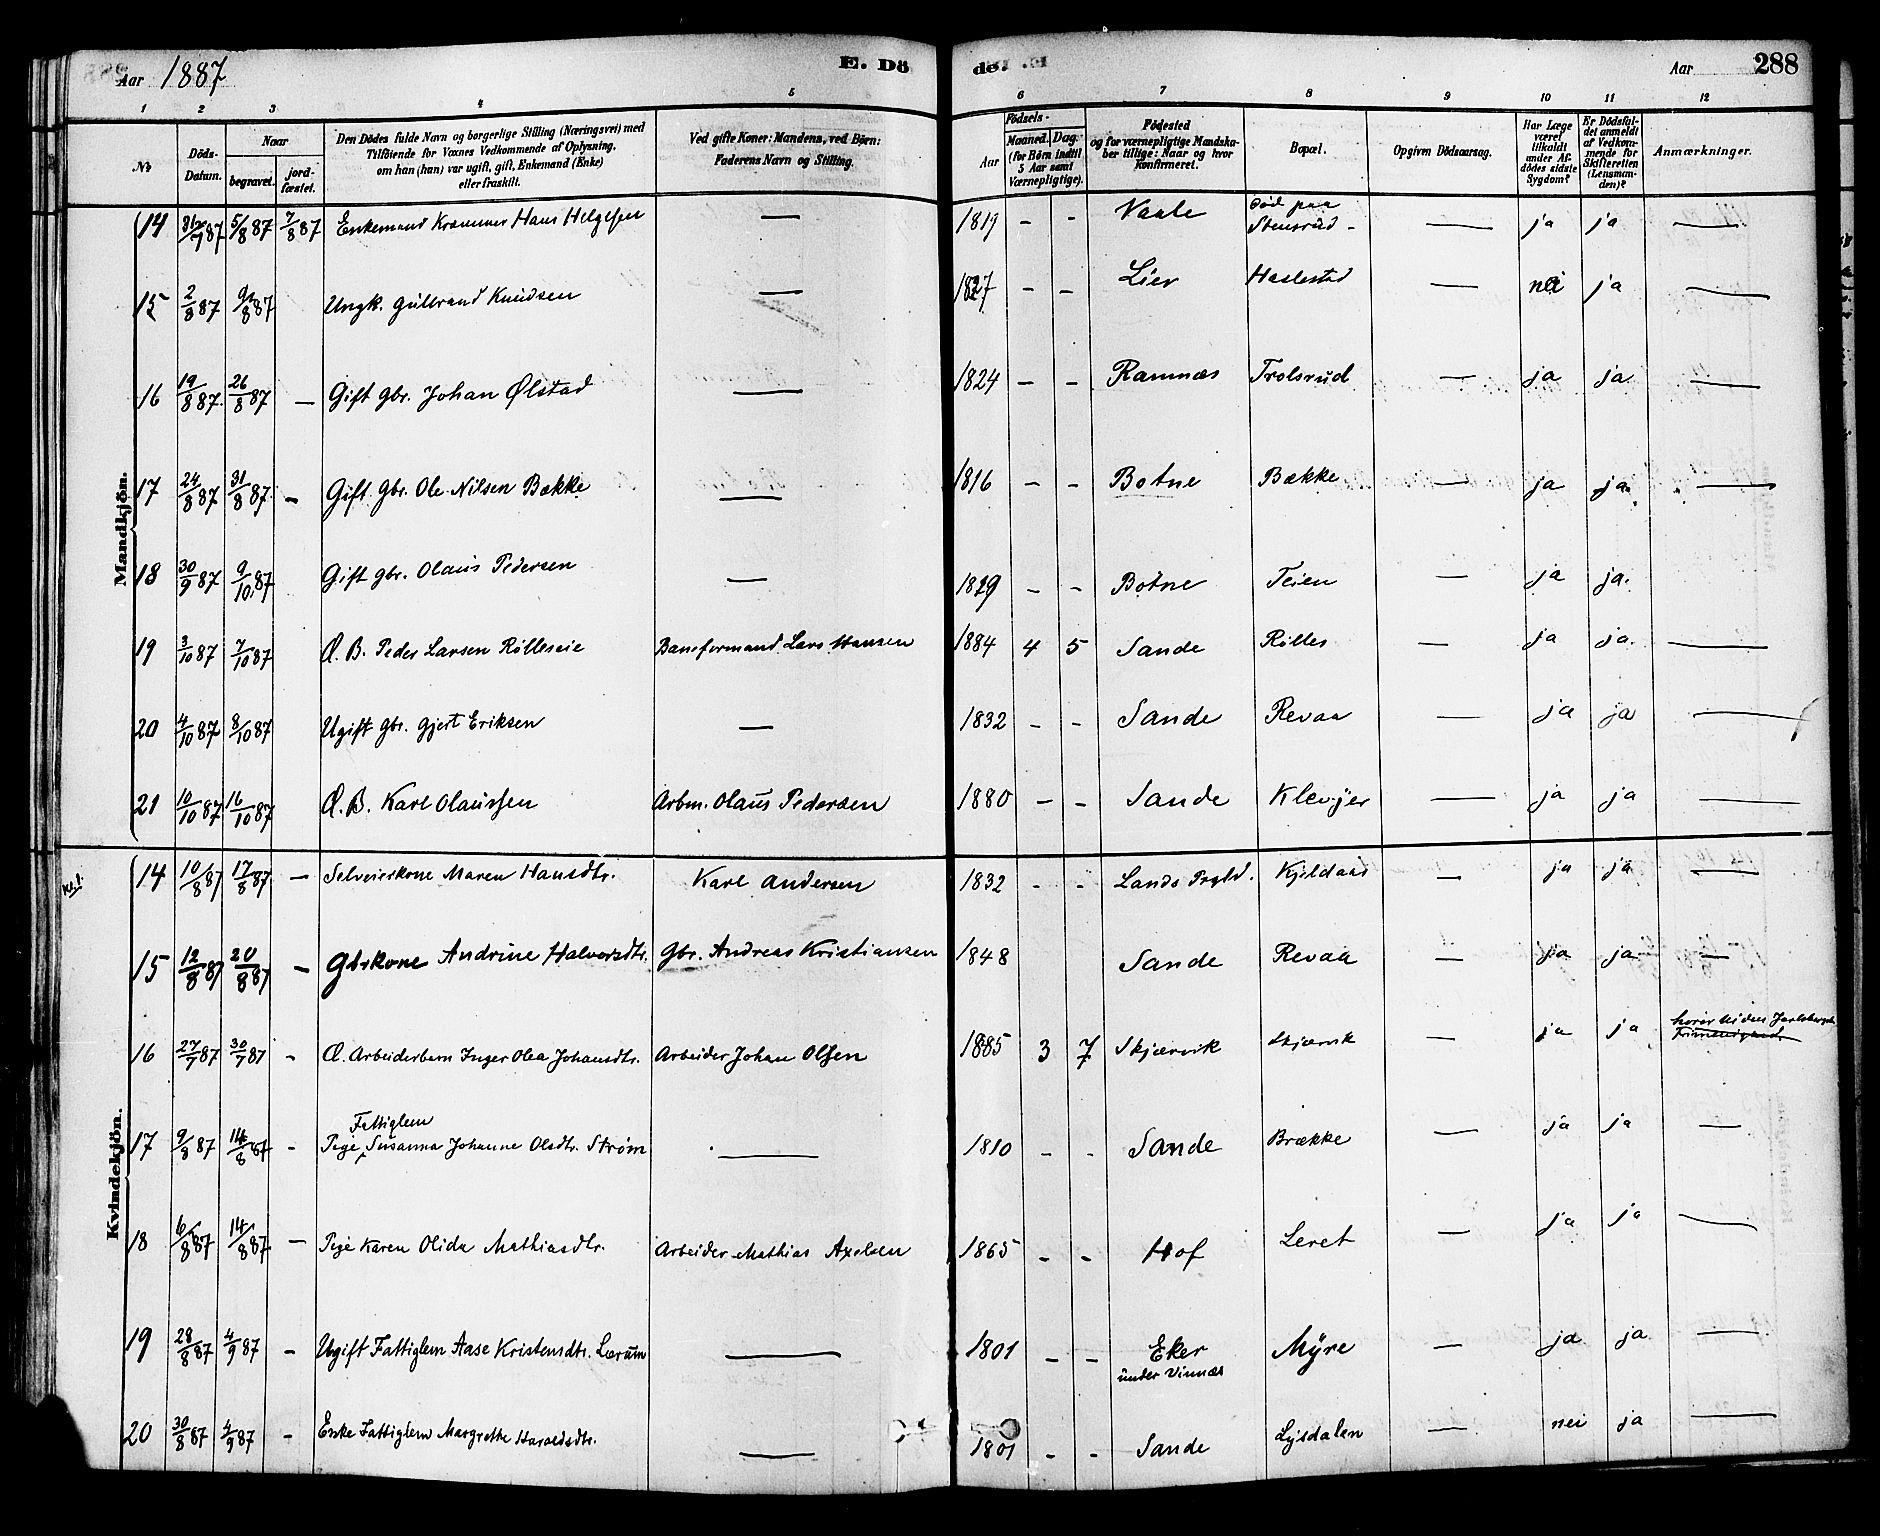 Aar 1887 E. Dö de. Aar 288
1 2 3 4 5 6 7 8 9 10 11 12
No. Döds-Datum. Naar begravet. jordfæstet. Den Dödes fulde Navn og borgerlige Stilling (Næringsvei) med Tilföiende for Voxnes Vedkommende af Oplysning, om han (hun) var ugift, gift, Enkemand (Enke) eller fraskilt. Ved gifte Koner: Mandens, ved Børn: Faderens Navn og Stilling. Födsels- Aar Maaned. Dag. (for Börn indtil 5 Aar samt Værnepligtige). Födested og for værnepligtige Mandskaber tillige: Naar og hvor Konfirmeret. Bopæl. Opgiven Dödsaarsag. Har Læge været tilkaldt under Afdödes sidste Sygdom? Er Dödsfaldet anmeldt af Vedkommende for Skifteretten (Lensmanden)? Anmærkninger.
Mandkjön.
14 31/7 87 5/8 87 7/8 87 Enkemand Kræmmer Hans Helgesen — 1819 - - Vaale Död paa Stensrud - — ja ja —
15 2/8 87 9/8 87 Ungk. Gulbrand Knudsen — 1827 - - Lier Haslestad — nei ja —
16 19/8 87 26/8 87 — Gift Gbr. Johan Ølstad — 1824 - - Ramnæs Trolsrud — ja ja —
17 24/8 87 31/8 87 - Gift Gbr. Ole Nilsen Bække — 1816 - - Botne Bække — ja ja —
18 30/9 87 9/10 87 Gift gbr. Olaus Pedersen — 1829 - - Botne Teien — ja ja.
19 3/10 87 7/10 87 Æ. B. Peder Larsen Rölleseie Baneformand Lars Hansen 1884 4 5 Sande Rölles — ja ja. —
20 4/10 87 8/10 87 Ugift Gbr. Gjert Eriksen — 1832 - - Sande Revaa — ja ja —
21 10/10 87 16/10 87 Æ. B. Karl Olaussen Arbm. Olaus Pedersen 1880 - - Sande Klevjer — ja ja —
Kvindekjön.
14 10/8 87 17/8 87 — Selveierkone Maren Hansdtr. Karl Andersen 1832 - - Lands Prgld. Kjeldaas — ja ja —
15 12/8 87 20/8 87 — Gbrkone Andrine Halvorsdtr. Gbr. Andreas Kristiansen 1848 Sande Revaa — ja ja —
16 27/7 87 30/7 87 - Æ. Arbeiderbarn Inger Olea Johansdtr. Arbeider Johan Olsen 1885 3 7 Skjærvik Skjærvik — ja ja
17 9/8 87 14/8 87 - Pige Fattiglem Susanna Johanne Olsdtr. Strøm — 1810 - - Sande Brække — ja ja —
18 6/8 87 14/8 87 — Pige Karen Olida Mathiasdtr. Arbeider Mathias Axelsen 1865 - - Hof Leret — ja ja —
19 28/8 87 4/9 87 - Ugift Fattiglem Aase Kristensdtr. Lærum — 1801 - - Eker under Vinnæs Myre — ja ja —
20 30/8 87 4/9 87 - Enke Fattiglem Margrethe Haraldsdtr. — 1801 - - Sande Lysdalen — nei ja —